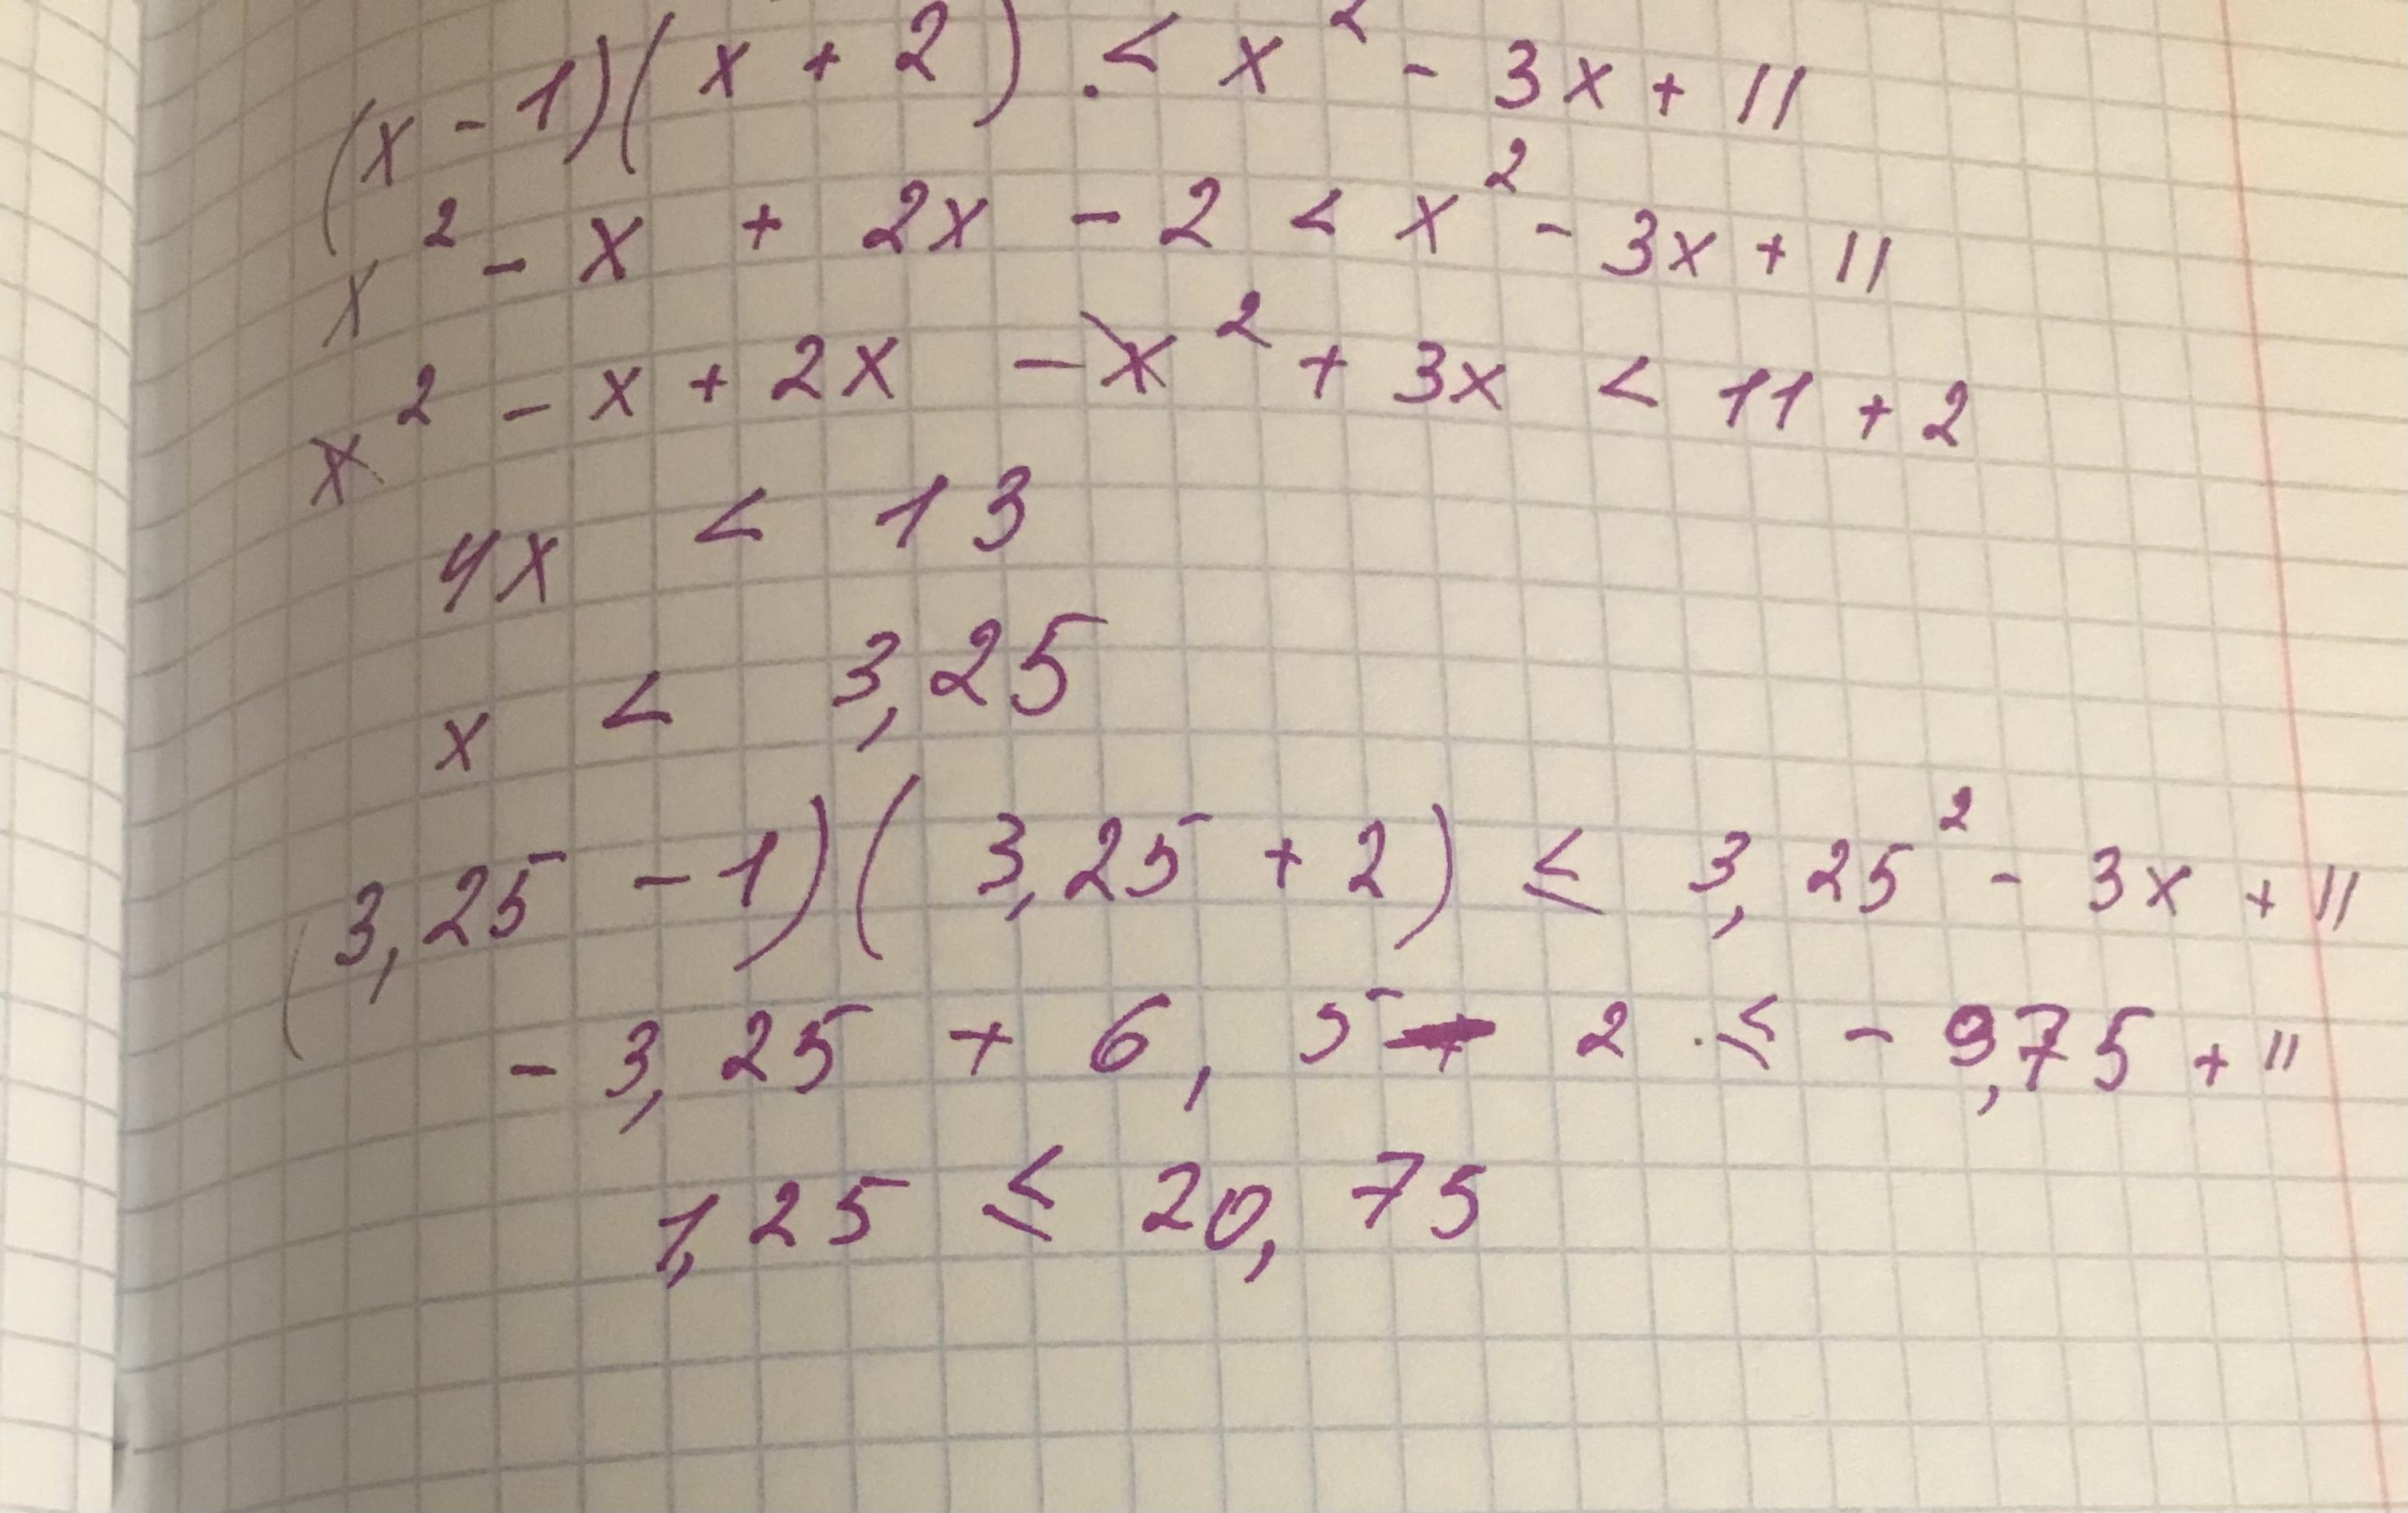 (x - 1)(x + 2) < x² - 3x + 11
x² - x + 2x - 2 < x² - 3x + 11
x² - x + 2x - x² + 3x < 11 + 2
4x < 13
x < 3,25
(3,25 - 1)(3,25 + 2) ≤ 3,25² - 3x + 11
- 3,25 + 6,5 - 2 ≤ - 9,75 + 11
1,25 ≤ 20,75